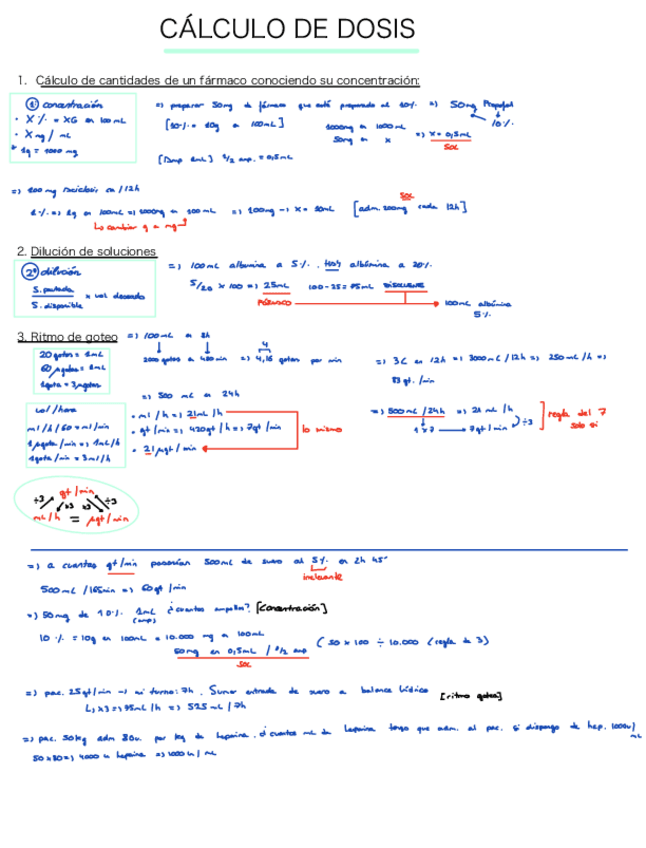 CÁLCULO DE DOSIS
1. Cálculo de cantidades de un fármaco conociendo su concentración:
① concentración
· X % = XG en 100mL
· X mg / mL
* 1g = 1000 mg
=> preparar 50mg de fármaco que está preparado al 10% => 50mg Propofol
10%
[10% = 10g en 100mL]
1000mg en 100mL
50mg en X
=> X = 0,5mL
SOL
[1amp 1mL] 1/2 amp. = 0,5mL
=> 200 mg en /12h
=> 100mg => X = 10mL
SOL
[adm. 200mg cada 12h]
Lo cambiar g a mg
2. Dilución de soluciones
② dilución
S. pautada
S. disponible
x vol deseado
=> 100mL albumina a 5%. Hay albúmina a 20%.
5/20 x 100 => 25mL
100-25 = 75mL DISOLVENTE
FÁRMACO
100mL albúmina
5%
3. Ritmo de goteo
=> 100mL en 8h
20 gotas = 1mL
60 µgotas = 1mL
1gota = 3µgotas
2000 gotas a 480min => 4,16 gotas por min
4
=> 3L en 12h => 3000mL/12h => 250mL/h =>
83 gt./min
=> 500 mL en 24h
vol/hora
ml/h/60 = ml/min
1µgota/min => 1mL/h
1gota/min = 3ml/h
· ml/h => 21mL/h
· gt/min => 420gt/h => 7gt/min
· 21µgt/min
lo mismo
=> 500mL/24h => 21 mL/h
7gt/min
÷3
regla del 7
solo si
gt/min
÷3
x3
x3
÷3
mL/h = µgt/min
=> a cuantas gt/min pasarían 500mL de suero al 5% en 2h 45'
irrelevante
500mL/165min => 60gt/min
=> 50mg de 10% 1mL ¿cuántas ampollas? [Concentración]
(amp)
10% = 10g en 100mL = 10.000 mg a 100mL
50mg en 0,5mL / 1/2 amp
SOL
(50 x 100 ÷ 10.000 (regla de 3)
=> pac. 25gt/min -> mi turno: 7h. Sumar entrada de suero a balance hídrico [ritmo goteo]
L> x3 => 75mL/h => 525mL/7h
=> pac. 50kg adm 80u. por kg de heparina. ¿cuantos mL de heparina tengo que adm. al pac. si dispongo de hep. 1000u/
mL
50 x 80 => 4000 u heparina => 1000u/mL